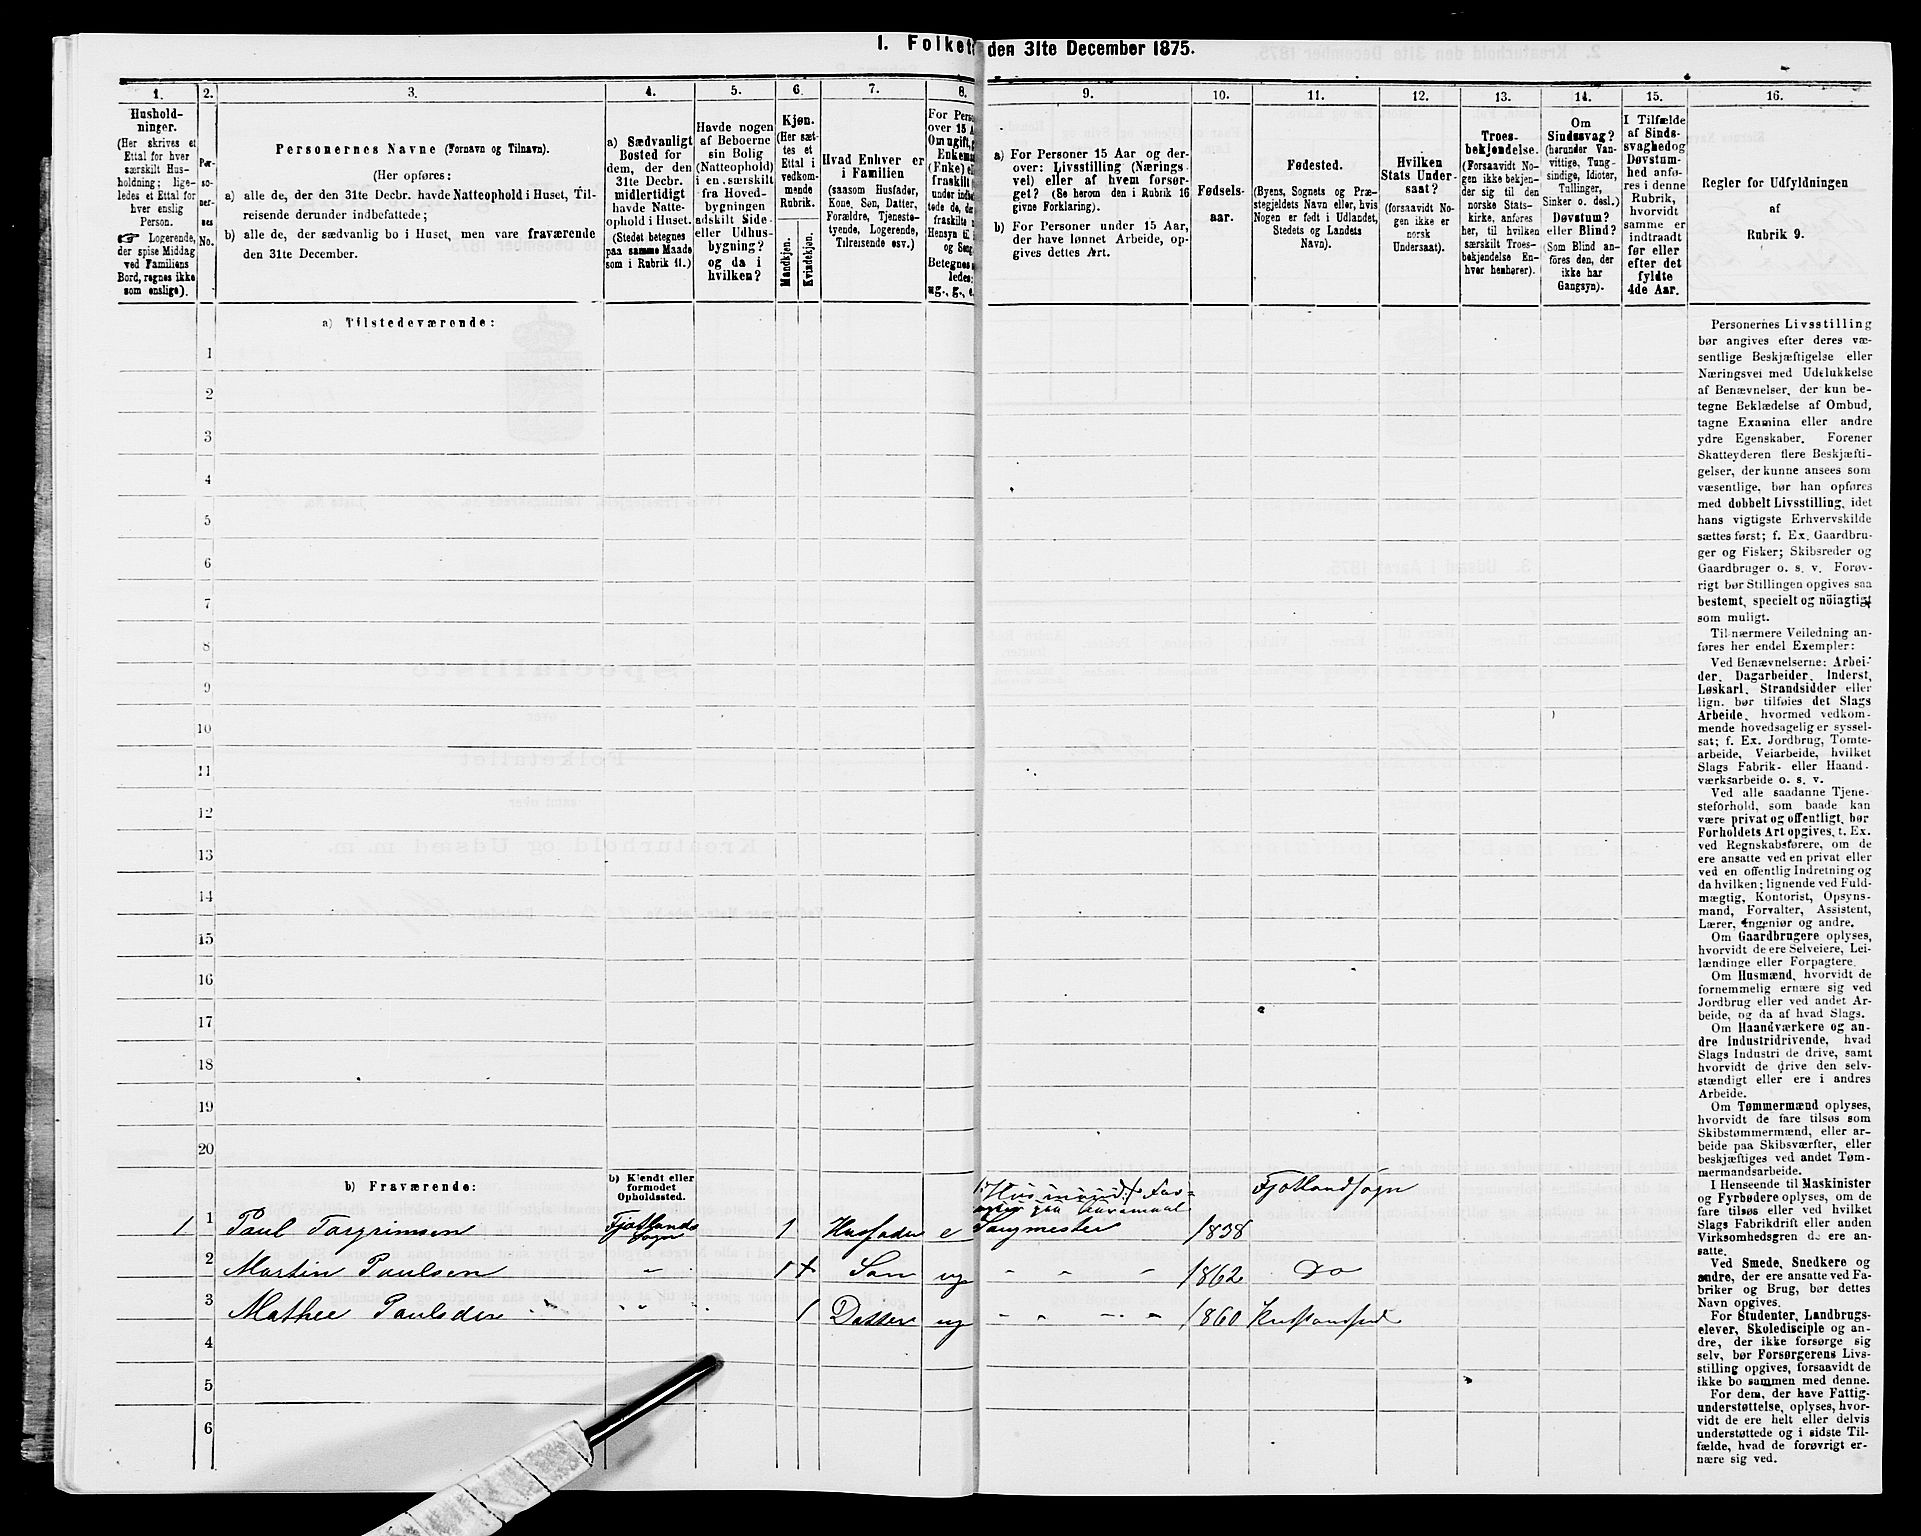 1. Folket
den 31te December 1875.
1.
2.
3.
4.
5.
6.
7.
8.
9.
10.
11.
12.
13.
14.
15.
16.
Hushold-
ninger.
(Her skrives et
Ettal for hver
særskilt Hus-
holdning; lige-
ledes et Ettal for
hver enslig
Person.
☞ Logerende,
der spise Middag
ved Familiens
Bord, regnes ikke
som enslige).
Per-
so-
ner-
nes
No.
Personernes Navne (Fornavn og Tilnavn).
(Her opføres:
a) alle de, der den 31te Decbr. havde Natteophold i Huset, Til-
reisende derunder indbefattede;
b) alle de, der sædvanlig bo i Huset, men vare fraværende
den 31te December.
a) Sædvanligt
Bosted for
dem, der den
31te Decbr.
midlertidigt
havde Natte-
ophold i Huset.
(Stedet betegnes
paa samme Maade
som i Rubrik 11.)
Havde nogen
af Beboerne
sin Bolig
(Natteophold)
i en særskilt
fra Hoved-
bygningen
adskilt Side-
eller Udhus-
bygning?
og da i
hvilken?
Kjøn.
(Her sæt-
tes et
Ettal i
vedkom-
mende
Rubrik.
Mandkjøn.
Kvindekjøn.
Hvad Enhver er
i Familien
(saasom Husfader,
Kone, Søn, Datter,
Forældre, Tjeneste-
tyende, Logerende,
Tilreisende osv.)
For Perso
over 15 A
Om ugift, g
Enkema
(Enke) el
fraskilt
under indbe
tede de, de
fraskilte
Hensyn ti
og Seng
Betegnes
ledes:
ug., g., e.
a) For Personer 15 Aar og der-
over: Livsstilling (Nærings-
vei) eller af hvem forsør-
get? (Se herom den i Rubrik 16
givne Forklaring).
b) For Personer under 15 Aar,
der have lønnet Arbeide, op-
gives dettes Art.
Fødsels-
aar.
Fødested.
(Byens, Sognets og Præ-
stegjeldets Navn eller, hvis
Nogen er født i Udlandet,
Stedets og Landets
Navn).
Hvilken
Stats Under-
saat?
(forsaavidt No-
gen ikke er
norsk
Undersaat).
Troes-
bekjendelse.
(Forsaavidt No-
gen ikke bekjen-
der sig til den
norske Stats-
kirke, anføres
her, til hvilken
særskilt Troes-
bekjendelse En-
hver henhører).
Om
Sindssvag?
(herunder Van-
vittige, Tung-
sindige, Idioter,
Tullinger,
Sinker o. desl.)
Døvstum?
eller Blind?
(Som Blind an-
føres den, der
ikke har
Gangsyn).
I Tilfælde
af Sinds-
svaghed og
Døvstum-
hed anfø-
res i denne
Rubrik,
hvorvidt
samme er
indtraadt
før eller
efter det
fyldte
4de Aar.
Regler for Udfyldningen
af
Rubrik 9.
a) Tilstedeværende:
1
2
3
4
5
6
7
8
9
10
11
12
13
14
15
16
17
18
19
20
b) Fraværende:
b) Kjendt eller
formodet
Opholdssted.
Husmand, For-
Fjotlandsogn
1 1 Paul Torgrimsen Fjotlands 1 Husfader e Sangmester 1838
sogn
2 Martin Paulsen " 1 + Søn ug " " " 1862 Do
3 Mathee Paulsdtr " " 1 Datter ug " " " " 1860
4
5
6
Personernes Livsstilling
bør angives efter deres væ-
sentlige Beskjæftigelse eller
Næringsvei med Udelukkelse
af Benævnelser, der kun be-
tegne Beklædelse af Ombud,
tagne Examina eller andre
ydre Egenskaber. Forener
Skatteyderen flere Beskjæfti-
gelser, der kunne ansees som
væsentlige, bør han opføres
med dobbelt Livsstilling, idet
hans vigtigste Erhvervskilde
sættes først; f. Ex. Gaardbru-
ger og Fisker; Skibsreder og
Gaardbruger o. s. v. Forøv-
rigt bør Stillingen opgives saa
bestemt, specielt og nöiagtigt
som muligt.
Til nærmere Veiledning an-
føres her endel Exempler:
Ved Benævnelserne: Arbei-
der, Dagarbeider, Inderst,
Løskarl, Strandsidder eller
lign. bør tilføies det Slags
Arbeide, hvormed vedkom-
mende hovedsagelig er syssel-
sat; f. Ex. Jordbrug, Tomte-
arbeide, Veiarbeide, hvilket
Slags Fabrik- eller Haand-
værksarbeide o. s. v.
Ved alle saadanne Tjene-
steforhold, som baade kan
være privat og offentligt, bør
Forholdets Art opgives, t. Ex.
ved Regnskabsførere, om de
ere ansatte ved en privat eller
ved en offentlig Indretning og
da hvilken; lignende ved Fuld-
mægtig, Kontorist, Opsyns-
mand, Forvalter, Assistent,
Lærer, Ingeniør og andre.
Om Gaardbrugere oplyses,
hvorvidt de ere Selveiere, Lei-
lændinge eller Forpagtere.
Om Husmænd, hvorvidt de
fornemmelig ernære sig ved
Jordbrug eller ved andet Ar-
beide, og da af hvad Slags.
Om Haandværkere og an-
dre Industridrivende, hvad
Slags Industri de drive, samt
hvorvidt de drive den selv-
stændigt eller ere i andres
Arbeide.
Om Tømmermænd oplyses,
hvorvidt de fare tilsøs som
Skibstømmermænd, eller ar-
beide paa Skibsværfter, eller
beskjæftiges ved andet Tøm-
mermandsarbeide.
I Henseende til Maskinister
og Fyrbødere oplyses, om de
fare tilsøs eller ved hvilket
Slags Fabrikdrift eller anden
Virksomhedsgren de ere an-
satte.
Ved Smede, Snedkere og
andre, der ere ansatte ved Fa-
briker og Brug, bør dettes
Navn opgives.
For Studenter, Landbrugs-
elever, Skoledisciple og an-
dre, der ikke forsørge sig
selv, bør Forsørgerens Livs-
stilling opgives, forsaavidt de
ikke bo sammen med denne.
For dem, der have Fattig-
understøttelse, oplyses, hvor-
vidt de ere helt eller delvis
understøttede og i sidste Til-
fælde, hvad de forøvrigt er-
nære sig ved.